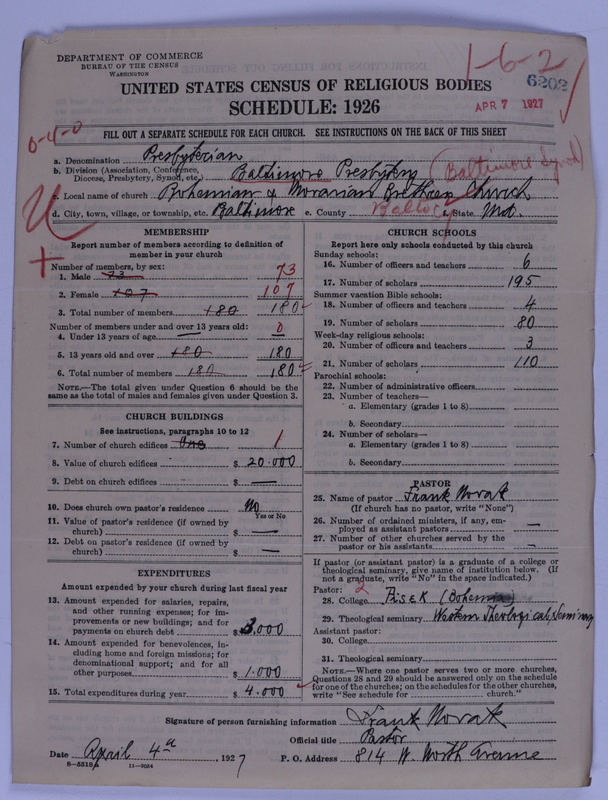 DEPARTMENT OF COMMERCE
BUREAU OF THE CENSUS
WASHINGTON
1-6-2
6202
APR 7 1927
UNITED STATES CENSUS OF RELIGIOUS BODIES
SCHEDULE: 1926
0-4-0
FILL OUT A SEPARATE SCHEDULE FOR EACH CHURCH. SEE INSTRUCTIONS ON THE BACK OF THIS SHEET
a. Denomination Presbyterian
b. Division (Association, Conference, Diocese, Presbytery, Synod, etc.) Baltimore Presbytery (Baltimore Synod)
c. Local name of church Bohemian & Moravian Brethren Church
d. City, town, village, or township, etc. Baltimore e. County Balto City f. State Md.
MEMBERSHIP
Report number of members according to definition of member in your church
Number of members, by sex:
1. Male 73 73
2. Female 107 107
3. Total number of members 180 180
Number of members under and over 13 years old:
4. Under 13 years of age — 0
5. 13 years old and over 180 180
6. Total number of members 180 180
NOTE.—The total given under Question 6 should be the same as the total of males and females given under Question 3.
CHURCH BUILDINGS
See instructions, paragraphs 10 to 12
7. Number of church edifices One 1
8. Value of church edifices $ 20.000
9. Debt on church edifices $ —
10. Does church own pastor's residence No
Yes or No
11. Value of pastor's residence (if owned by church) $ —
12. Debt on pastor's residence (if owned by church) $ —
EXPENDITURES
Amount expended by your church during last fiscal year
13. Amount expended for salaries, repairs, and other running expenses; for improvements or new buildings; and for payments on church debt $ 3.000
14. Amount expended for benevolences, including home and foreign missions; for denominational support; and for all other purposes $ 1.000
15. Total expenditures during year $ 4.000
CHURCH SCHOOLS
Report here only schools conducted by this church
Sunday schools:
16. Number of officers and teachers 6
17. Number of scholars 195
Summer vacation Bible schools:
18. Number of officers and teachers 4
19. Number of scholars 80
Week-day religious schools:
20. Number of officers and teachers 3
21. Number of scholars 110
Parochial schools:
22. Number of administrative officers
23. Number of teachers—
a. Elementary (grades 1 to 8)
b. Secondary
24. Number of scholars—
a. Elementary (grades 1 to 8)
b. Secondary
PASTOR
25. Name of pastor Frank Novak
(If church has no pastor, write "None")
26. Number of ordained ministers, if any, employed as assistant pastors —
27. Number of other churches served by the pastor or his assistants —
If pastor (or assistant pastor) is a graduate of a college or theological seminary, give name of institution below. (If not a graduate, write "No" in the space indicated.)
Pastor: 2
28. College Pisek (Bohemia)
29. Theological seminary Western Theological Seminary
Assistant pastor:
30. College
31. Theological seminary
NOTE.—Where one pastor serves two or more churches, Questions 28 and 29 should be answered only on the schedule for one of the churches; on the schedules for the other churches, write "See schedule for church."
Signature of person furnishing information Frank Novak
Official title Pastor
Date April 4th 1927 P. O. Address 814 W. North Avenue
11-9024